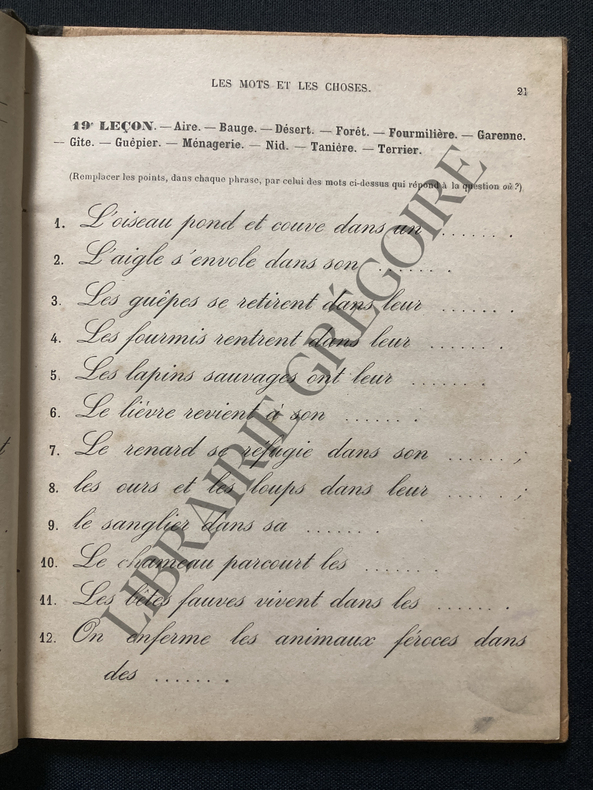 LES MOTS ET LES CHOSES.
21
19e LEÇON. — Aire. — Bauge. — Désert. — Forêt. — Fourmilière. — Garenne.
— Gîte. — Guêpier. — Ménagerie. — Nid. — Tanière. — Terrier.
(Remplacer les points, dans chaque phrase, par celui des mots ci-dessus qui répond à la question où ?)
1. L'oiseau pond et couve dans un .......
2. L'aigle s'envole dans son .......
3. Les guêpes se retirent dans leur .......
4. Les fourmis rentrent dans leur .......
5. Les lapins sauvages ont leur .......
6. Le lièvre revient à son .......
7. Le renard se réfugie dans son ...... ;
8. les ours et les loups dans leur ...... ;
9. le sanglier dans sa .......
10. Le chameau parcourt les .......
11. Les bêtes fauves vivent dans les .......
12. On enferme les animaux féroces dans
des .......
LIBRAIRIE GRÉGOIRE